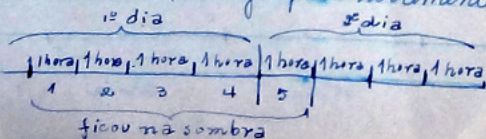 1º dia 2º dia
1 hora 1 hora 1 hora 1 hora 1 hora 1 hora 1 hora 1 hora
1 2 3 4 5
ficou na sombra